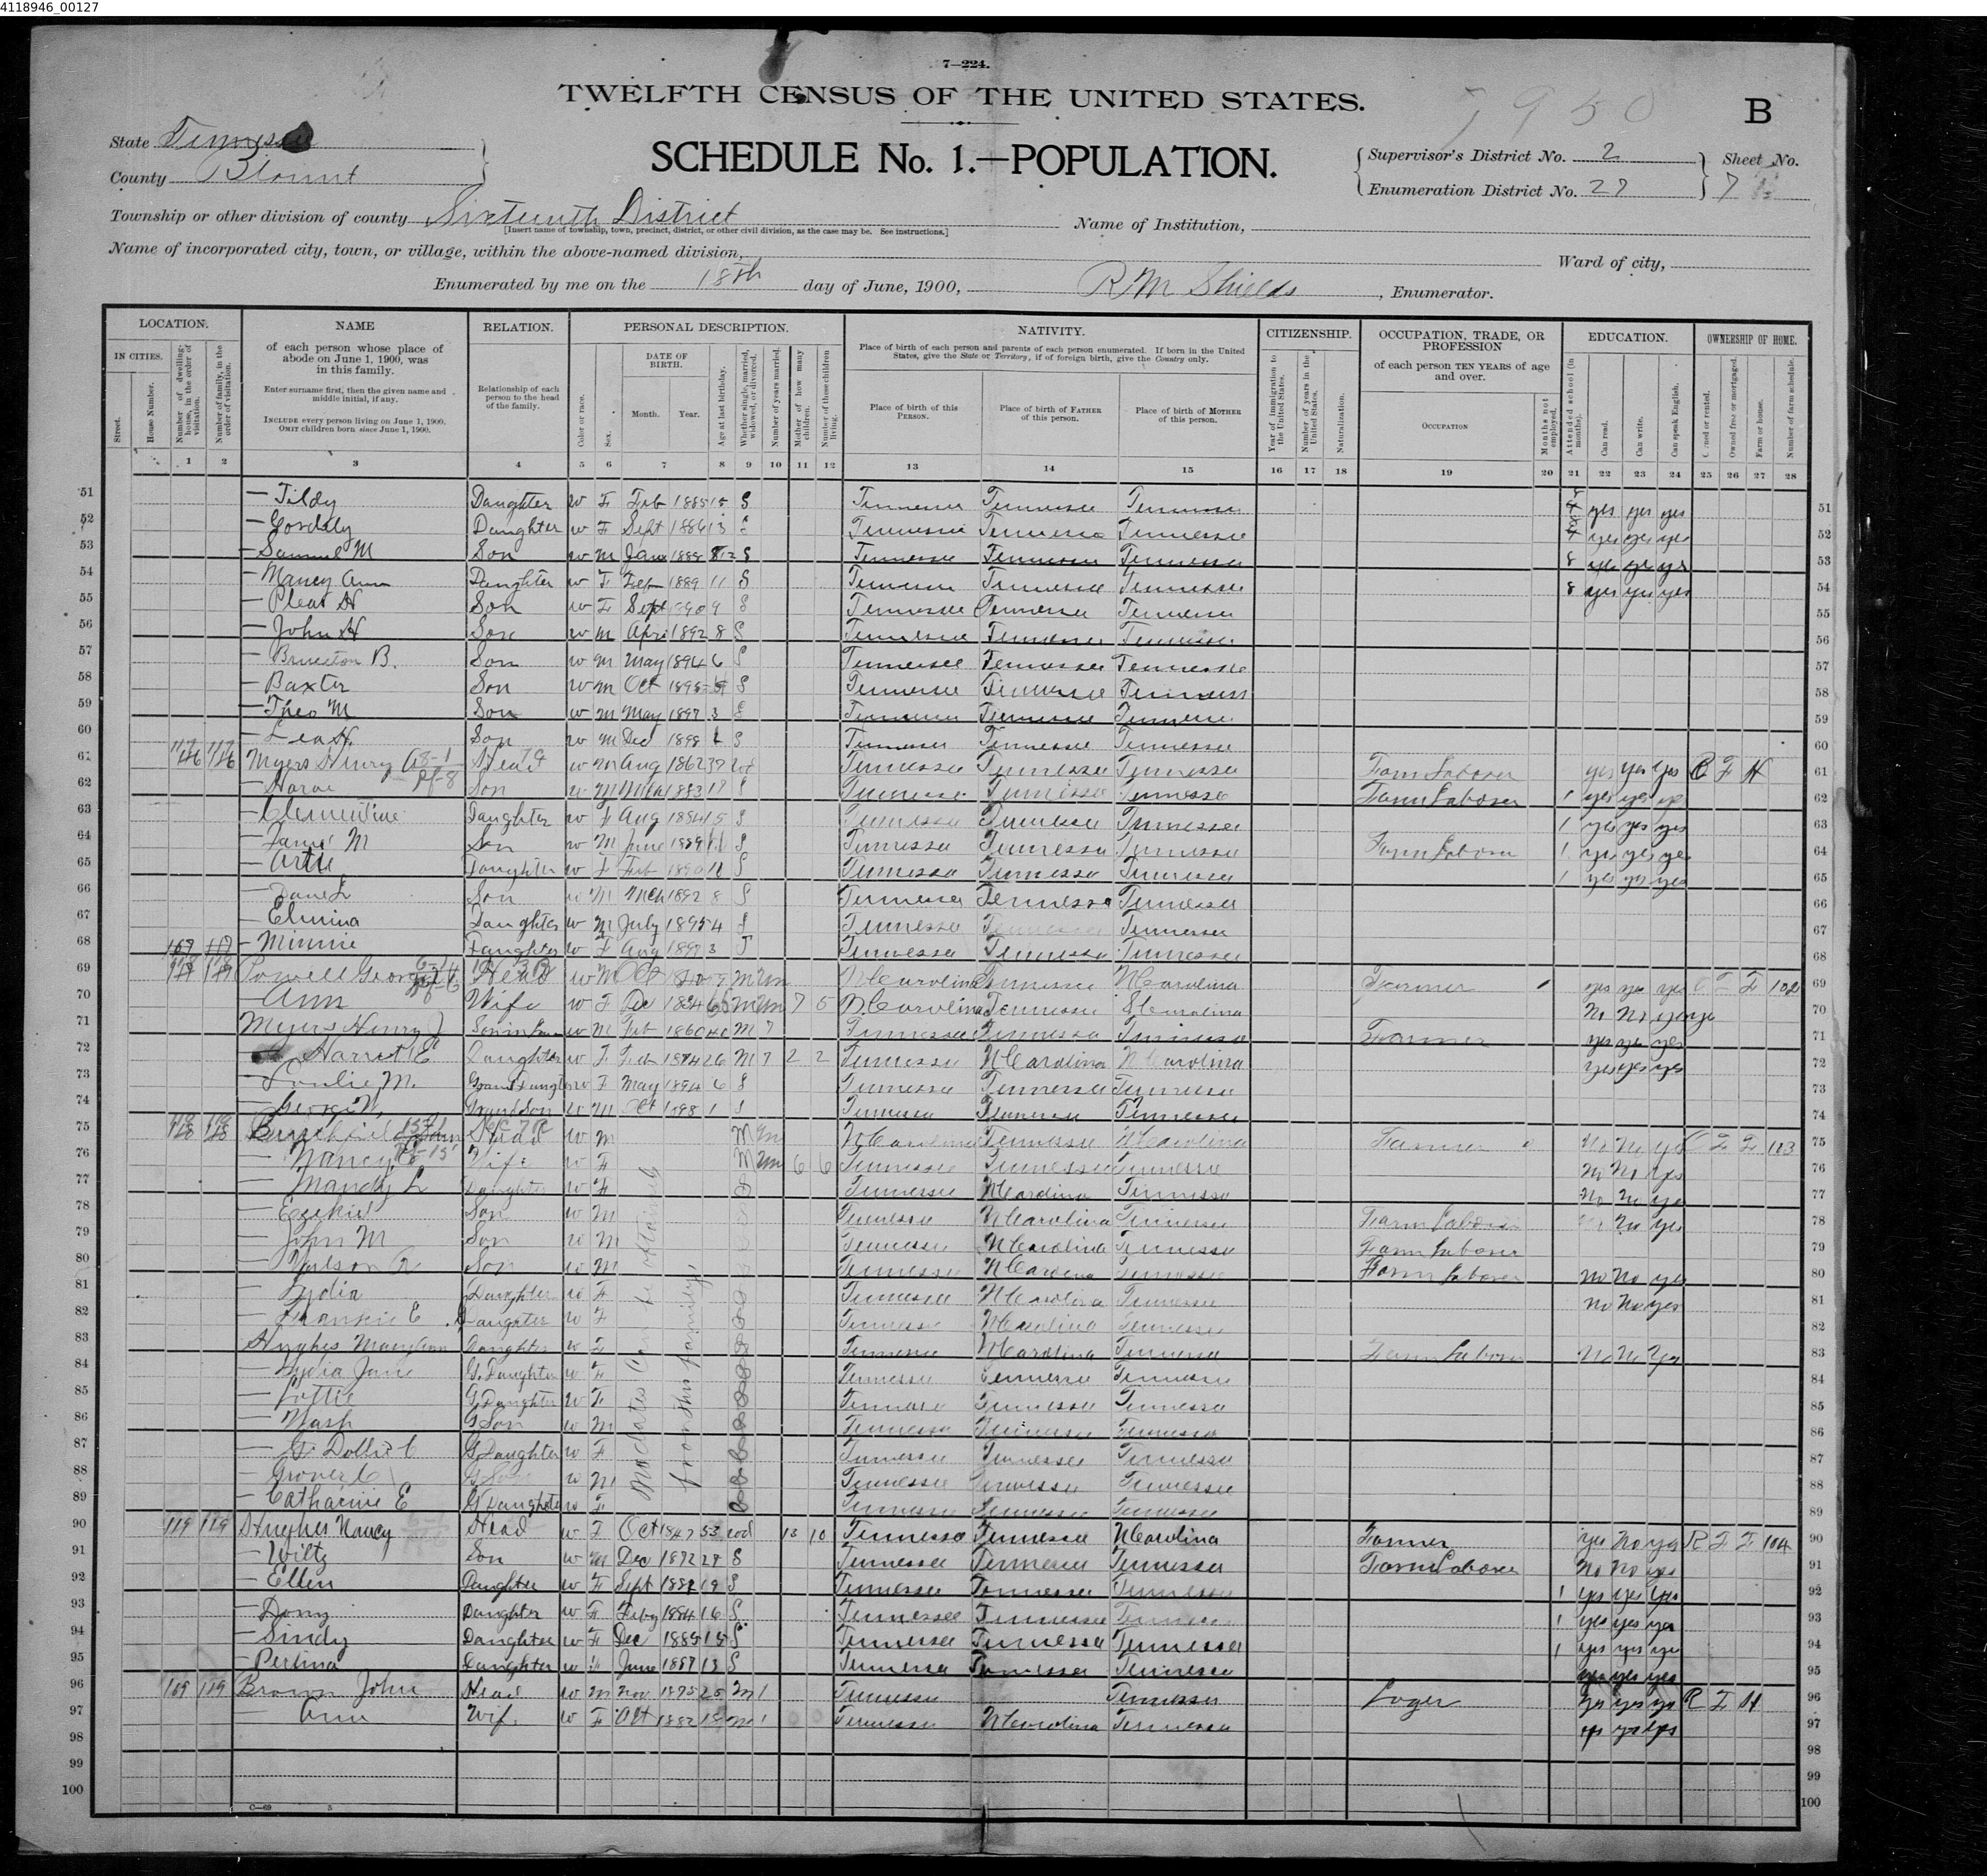 4118946_00127
7—224.
TWELFTH CENSUS OF THE UNITED STATES.
B
State Tennessee
SCHEDULE No. 1.—POPULATION.
County Blount
Supervisor's District No. 2
Sheet No.
Enumeration District No. 27
7
Township or other division of county Sixteenth District
[Insert name of township, town, precinct, district, or other civil division, as the case may be. See instructions.]
Name of Institution,
Name of incorporated city, town, or village, within the above-named division,
Ward of city,
Enumerated by me on the 18th day of June, 1900, R. M Shields, Enumerator.
LOCATION. NAME RELATION. PERSONAL DESCRIPTION. NATIVITY. CITIZENSHIP. OCCUPATION, TRADE, OR PROFESSION EDUCATION. OWNERSHIP OF HOME.
IN CITIES. Street. House Number. Number of dwelling-house, in the order of visitation. Number of family, in the order of visitation.
of each person whose place of abode on June 1, 1900, was in this family.
Enter surname first, then the given name and middle initial, if any.
INCLUDE every person living on June 1, 1900. OMIT children born since June 1, 1900.
Relationship of each person to the head of the family.
Color or race. Sex. DATE OF BIRTH. Month. Year. Age at last birthday. Whether single, married, widowed, or divorced. Number of years married. Mother of how many children. Number of these children living.
Place of birth of each person and parents of each person enumerated. If born in the United States, give the State or Territory, if of foreign birth, give the Country only.
Place of birth of this PERSON. Place of birth of FATHER of this person. Place of birth of MOTHER of this person.
Year of immigration to the United States. Number of years in the United States. Naturalization.
of each person TEN YEARS of age and over.
OCCUPATION Months not employed.
Attended school (in months). Can read. Can write. Can speak English.
Owned or rented. Owned free or mortgaged. Farm or house. Number of farm schedule.
1 2 3 4 5 6 7 8 9 10 11 12 13 14 15 16 17 18 19 20 21 22 23 24 25 26 27 28
51 — Tildy Daughter W F Feb 1885 15 S Tennessee Tennessee Tennessee yes yes yes 51
52 Daughter W F Sept 1886 13 S Tennessee Tennessee Tennessee yes yes yes 52
53 — Samuel M Son W M Jan 1888 12 S Tennessee Tennessee Tennessee 8 yes yes yes 53
54 — Nancy Ann Daughter W F Feb 1889 11 S Tennessee Tennessee Tennessee 8 yes yes yes 54
55 — Pleas H Son W F Sept 1890 9 S Tennessee Tennessee Tennessee 55
56 — John H Son W M Apri 1892 8 S Tennessee Tennessee Tennessee 56
57 — B. Son W M May 1894 6 S Tennessee Tennessee Tennessee 57
58 — Baxter Son W M Oct 1895 S Tennessee Tennessee Tennessee 58
59 — Theo M Son W M May 1897 3 S Tennessee Tennessee Tennessee 59
60 — Lea H. Son W M Dec 1898 1 S Tennessee Tennessee Tennessee 60
61 Myers Henry A Head W M Aug 1862 37 Wd Tennessee Tennessee Tennessee Farm Laborer yes yes yes R F H 61
62 Son W M 1883 17 S Tennessee Tennessee Tennessee Farm Laborer 1 yes yes yes 62
63 — Clementine Daughter W F Aug 1884 15 S Tennessee Tennessee Tennessee 1 yes yes yes 63
64 M Son W M June 1889 11 S Tennessee Tennessee Tennessee Farm Laborer 1 yes yes yes 64
65 — Artie Daughter W F Feb 1890 S Tennessee Tennessee Tennessee 1 yes yes yes 65
66 — Dave L Son W M Mch 1892 8 S Tennessee Tennessee Tennessee 66
67 — Elmina Daughter W M July 1895 4 S Tennessee Tennessee Tennessee 67
68 — Minnie Daughter W F Aug 1897 3 S Tennessee Tennessee Tennessee 68
69 Powell George Head W M Oct M Un N Carolina Tennessee N Carolina Farmer yes yes yes O F F 102 69
70 — Ann Wife W F Dec 1834 65 M Un 7 5 N. Carolina Tennessee S Carolina No No yes 70
71 Myers Henry J Son in Law W M Feb 1860 40 M 7 Tennessee Tennessee Tennessee Farmer yes yes yes 71
72 — Harriet E Daughter W F Feb 1874 26 M 7 2 2 Tennessee N Carolina N Carolina yes yes yes 72
73 M. Grand Daughter W F May 1894 6 S Tennessee Tennessee Tennessee 73
74 — George W. Grand Son W M Oct 1898 1 S Tennessee Tennessee Tennessee 74
75 Burchfield Head W M M Un N Carolina Tennessee N Carolina Farmer 0 No No yes O F F 103 75
76 — Nancy Wife W F M Un 6 6 Tennessee Tennessee Tennessee No No yes 76
77 — Mandy L Daughter W F S Tennessee N Carolina Tennessee No No yes 77
78 — Ezekiel Son W M S Tennessee N Carolina Tennessee Farm Laborer No yes 78
79 — John M Son W M S Tennessee N Carolina Tennessee Farm Laborer 79
80 Son W M S Tennessee N Carolina Tennessee Farm Laborer No No yes 80
81 — Lydia Daughter W F S Tennessee N Carolina Tennessee No No yes 81
82 — Frankie E Daughter W F S Tennessee N Carolina Tennessee 82
83 Hughes Mary Ann Daughter W F S Tennessee N Carolina Tennessee Farm Laborer No No Yes 83
84 — Lydia Jane G. Daughter W F S Tennessee Tennessee Tennessee 84
85 — Lottie G Daughter W F S Tennessee Tennessee Tennessee 85
86 — Wash G Son W M S Tennessee Tennessee Tennessee 86
87 — G. Dollie C G Daughter W F S Tennessee Tennessee Tennessee 87
88 — Grover C G Son W M S Tennessee Tennessee Tennessee 88
89 — Catharine E G Daughter W F S Tennessee Tennessee Tennessee 89
No dates Can be obtained
from this family.
90 119 119 Hughes Nancy Head W F Oct 1847 53 Wd 13 10 Tennessee Tennessee N Carolina Farmer yes No yes R F F 104 90
91 — Wiltz Son W M Dec 1872 27 S Tennessee Tennessee Tennessee Farm Laborer No No yes 91
92 — Ellen Daughter W F Sept 1881 19 S Tennessee Tennessee Tennessee 1 yes yes yes 92
93 Daughter W F Feby 1884 16 S Tennessee Tennessee Tennessee 1 yes yes yes 93
94 — Sindy Daughter W F Dec 1885 15 S Tennessee Tennessee Tennessee 1 yes yes yes 94
95 — Perlina Daughter W F June 1887 13 S Tennessee Tennessee Tennessee yes yes yes 95
96 119 Brown John Head W M Nov 1875 25 M 1 Tennessee Tennessee Loger yes yes yes R F H 96
97 — Ann Wife W F Oct 1882 M 1 0 0 Tennessee N Carolina Tennessee yes yes yes 97
98 98
99 99
100 100
C—69 5